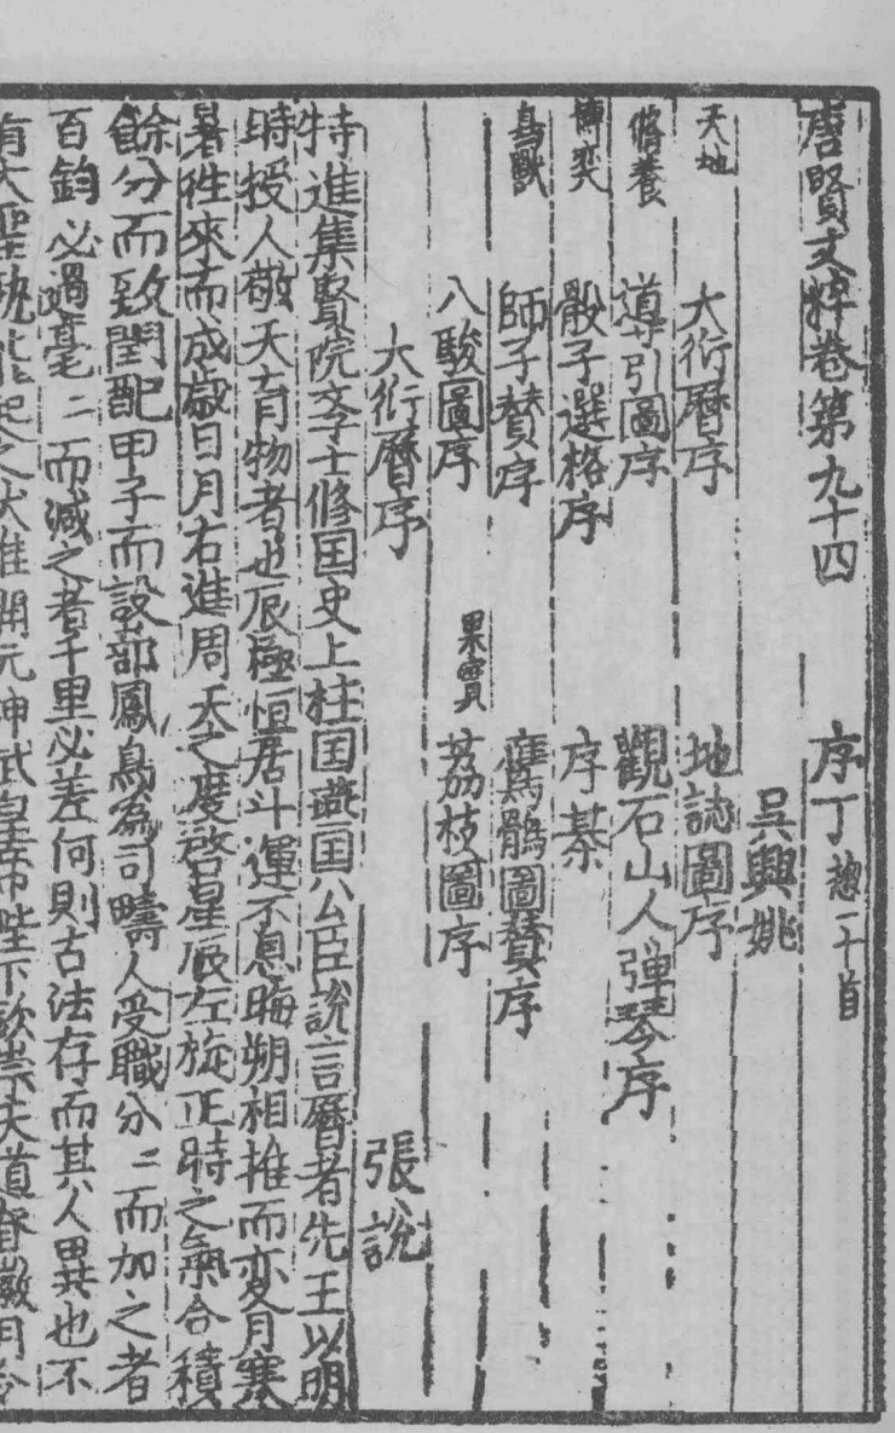 唐賢文粹卷第九十四 序丁 揔一十首
吳興姚
天地 大衍曆序 地誌圖序
脩養 導引圖序 觀石山人彈琴序
博奕 骰子選格序 序棊
鳥獸 師子贊序 鷹鶻圖贊序
八駿圖序 果實 荔枝圖序
大衍曆序 張說
特進集賢院斈士修囯史上柱囯燕囯公臣說言曆者先王以明
時授人敬天育物者也辰極恒居斗運不息晦朔相推而変月寒
暑徃來而成歲日月右進周天之度啓星辰左旋正時之氣合積
餘分而致閏配甲子而設蔀鳳鳥為司疇人受職分〻而加之者
百鈞必竭毫〻而減之者千里必差何則古法存而其人異也不
有大聖孰能起之伏惟開元神武皇帝陛下欽崇天道